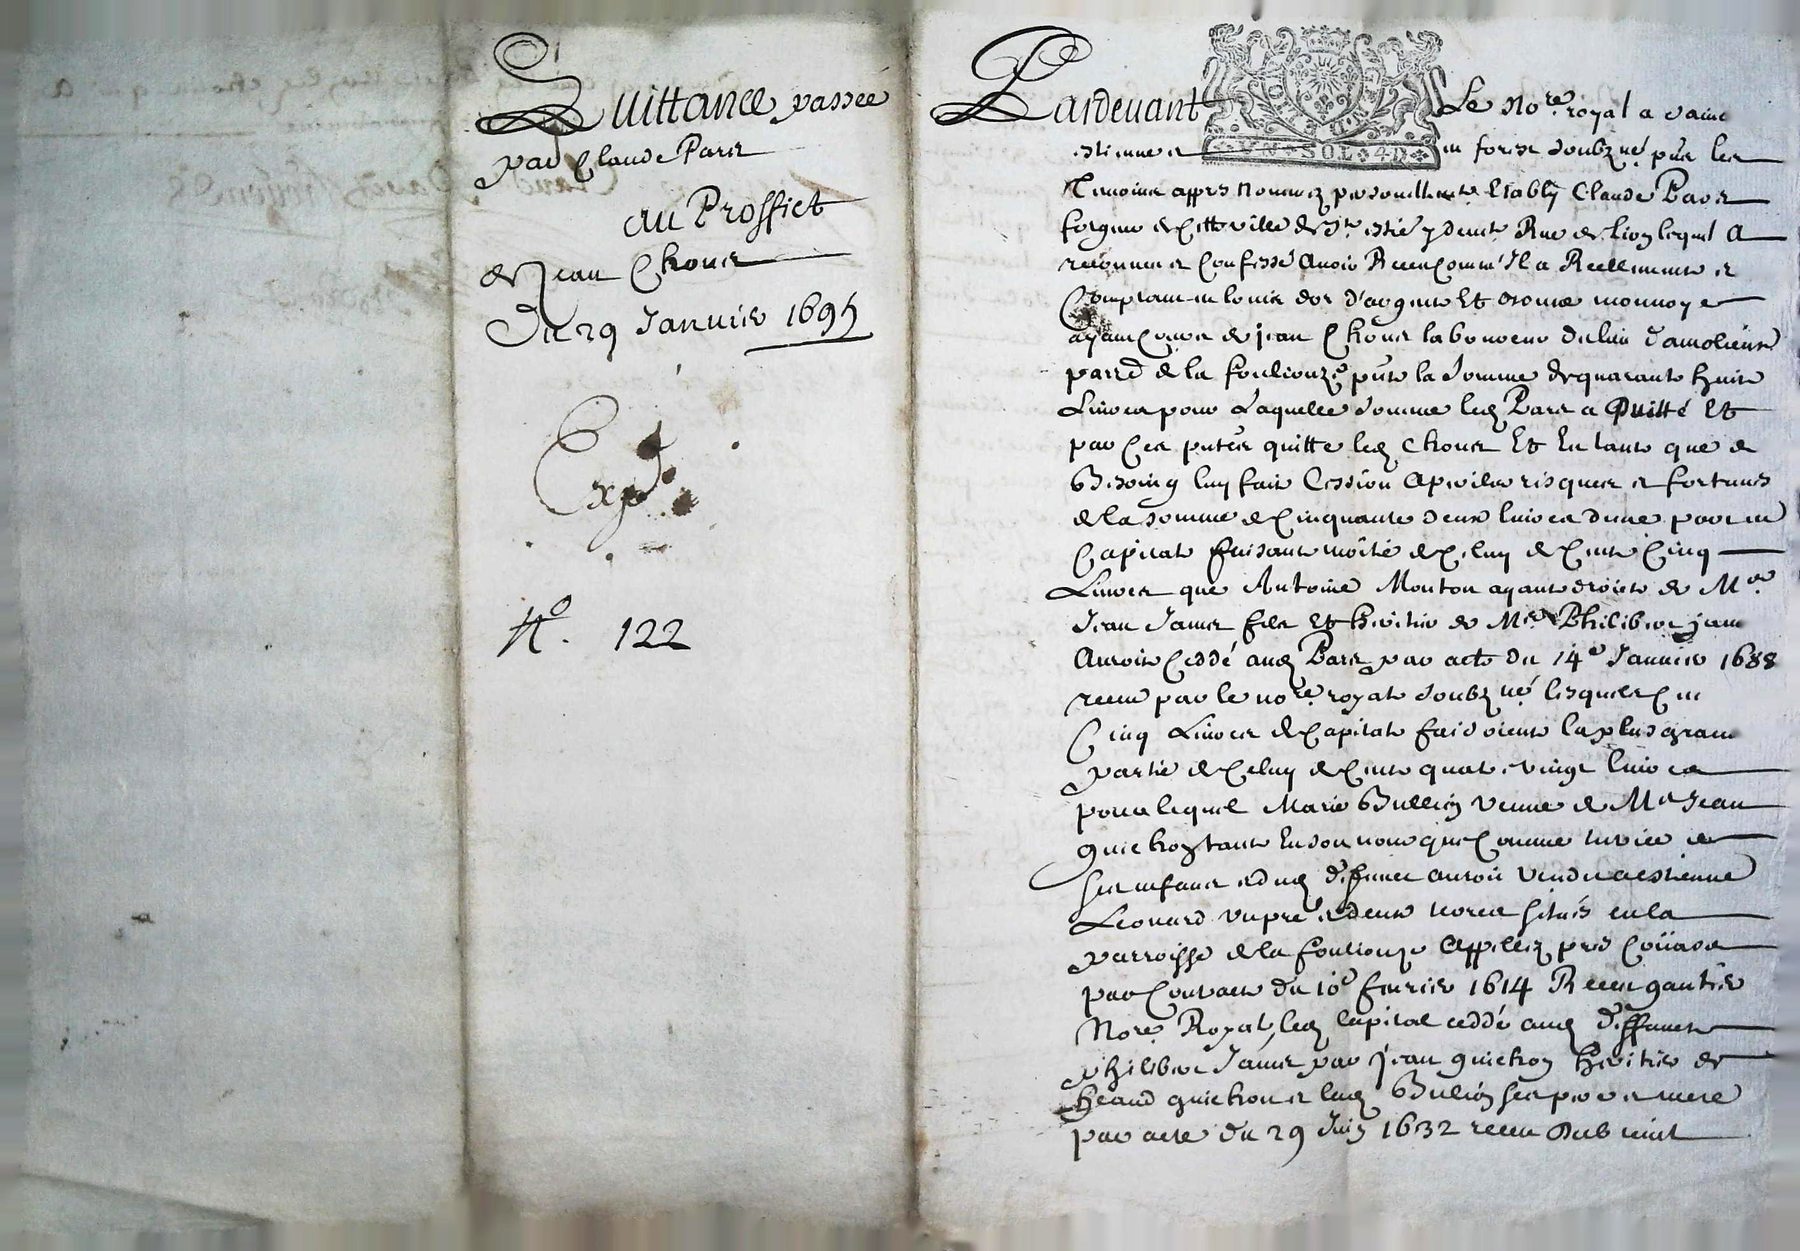 Quittance passée
par Claude Paris
au Proffict
de Jean Chovet
Du 29 Janvier 1695
Exp
N°. 122
Pardevant Le No.re royal a sainct
VN · SOL · 4D
estienne en forest soubzné, pnt les
Temoins appres nommez personellemt. Estably Claude Paris
forgeur de cette ville de St estie y demt. Rue de Lion lequel A
recogneu et Confessé Avoir Receu comme Il a Reellement et
Comptant en louis dor d'argent Et bonne monnoye
ayant Cours de jean Chovet laboureur du lieu
parr. de la fouliouze pnt la somme de quarante huit
Livres pour Laquelle somme led Paris a Quitté Et
par Ces pntes quitte led Chovet Et En tant que de
Besoing luy fait Cession A perilz risques et fortunes
de la somme de Cinquante deux livres dune part en
Capital faisant moitié de Celuy de Cent Cinq
Livres que Antoine Mouton ayant droict de Me
Jean Jamet filz Et heritier de Me Philibert jam
Auroit Ceddé aud Paris par acte du 14e Janvier 1688
receu par le no.re royal soubzné, lesquels Cen
Cinq Livres de Capital faisoient la plus gran
partie de Celuy de Cent quatre vingt livres
pour lequel Marie Bullieu veuve de Me Jean
tant En son nom que Comme tutrice de
ses enfans et dud deffunct auroit vendu a estienne
Leonard un pre et deux terres situés en la
parroisse de la fouliouze Appellez pres
par Contract du 10e febvrier 1614 Receu gautier
No.re Royal, led Capital ceddé aud deffunct
philibert Jamet par jean heritier de
et lad Bulieu ses pere et mere
par acte du 29 Juin 1632 receu